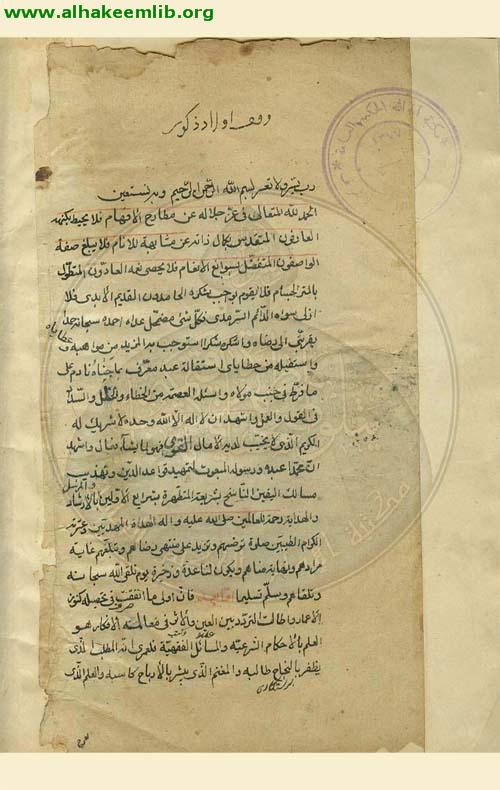 www.alhakeemlib.org
رب يسر ولا تعسر بسم الله الرحمن الرحيم وبه نستعين
الحمد لله المتعالي في عز جلاله عن مطارح الافهام فلا يحيط بكنهه
العارفون المتقدس بكمال ذاته عن مشابهة للانام فلا يبلغ صفته
الواصفون المتفضل بسوابغ الانعام فلا يحصى نعمه العادون المتطول
بالمنن الجسام فلا يقوم بواجب شكره الحامدون القديم الابدي فلا
ازلي سواه الدائم السرمدي فكل شئ مضمحل عداه احمده سبحانه حمدا
يقربني الى رضاه واشكره شكرا استوجب به المزيد من مواهبه وعطاياه
واستقيله من خطاياي استقالة عبد معترف بما جناه نادم على
ما فرط في جنب مولاه واسئله العصمة من الخطاء والخطل والسداد
في القول والعمل واشهد ان لا اله الا الله وحده لا شريك له
الكريم الذي لا يخيب لديه الامال القدير فهو لما يشاء فعال واشهد
ان محمدا عبده ورسوله المبعوث لتمهيد قواعد الدين وتهذيب
مسالك اليقين الناسخ بشريعته المطهرة شرايع الاولين والمرسل بالارشاد
والهداية رحمة للعالمين صلى الله عليه واله الهداة المهديين وعترته
الكرام الطيبين صلوة ترضيهم وتزيد على منتهى رضاهم وتبلغهم غاية
مرادهم ونهاية مناهم وتكون لنا عدة وذخيرة يوم نلقى الله سبحانه
ونلقاهم وسلم تسليما اما بعد فان اولى ما انفقت في تحصيله كنوز
الاعمار واطالت التردد بين العين والاثر في معالمه الافكار هو
العلم بالاحكام الشرعية والمسائل الفقهية فلعمري انه المطلب الذي
يظفر بالنجاح طالبه والمغنم الذي يبشر بالارباح كاسبه والعلم الذي